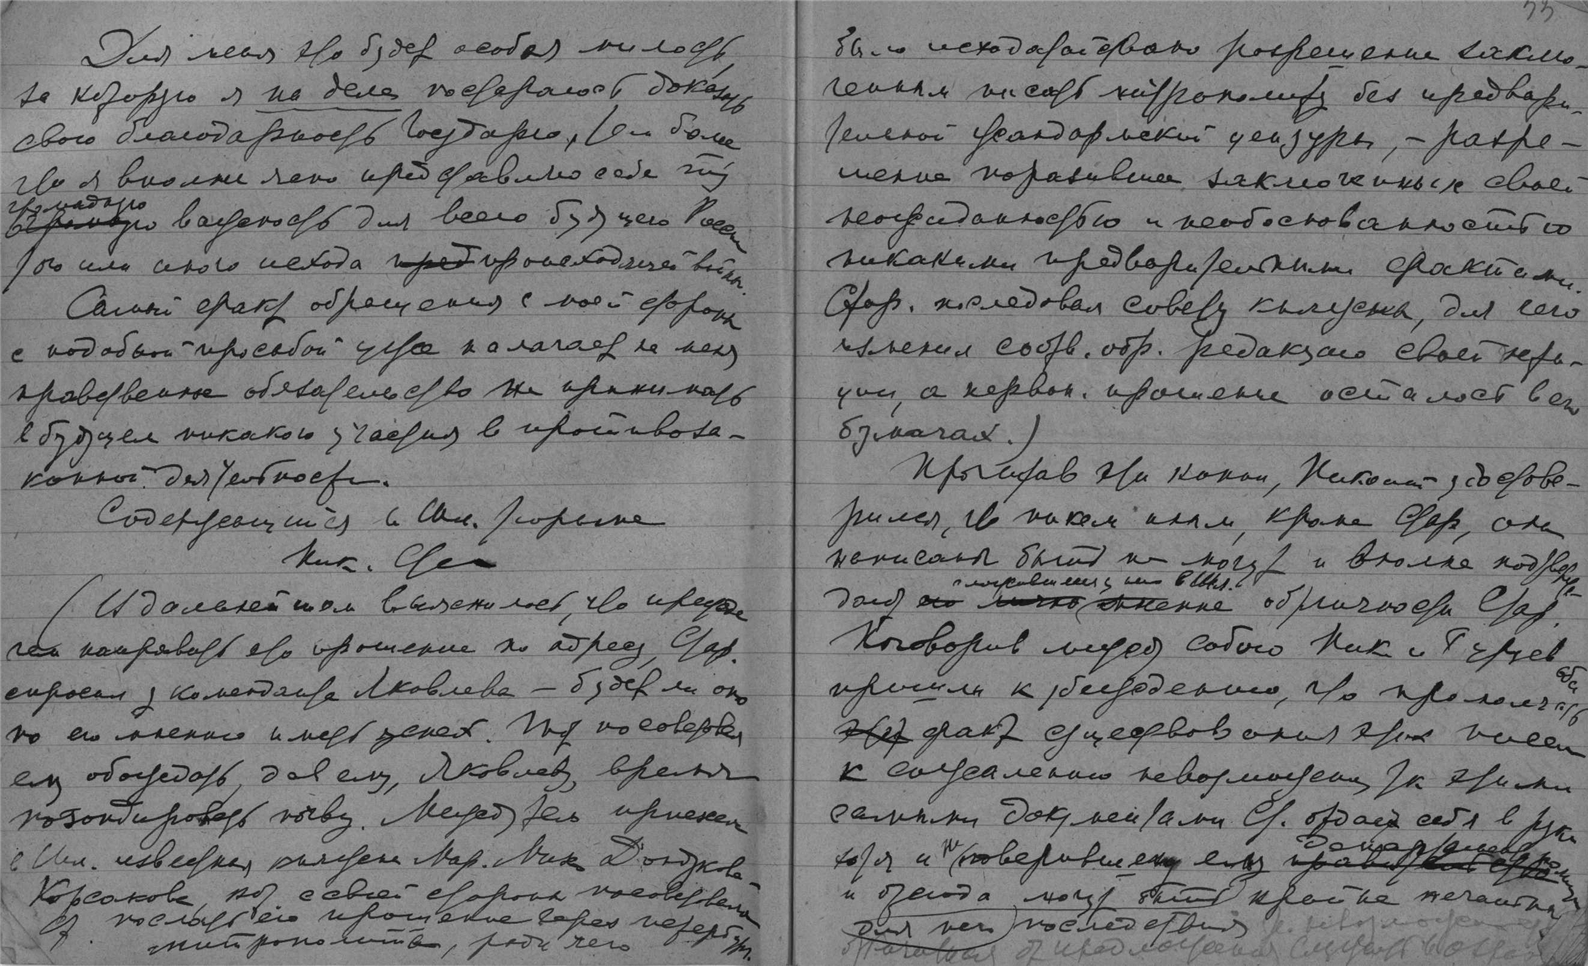 Для меня это будет особая милость,
за которую я на деле постараюсь доказать
свою благодарность Государю, тем более
что я вполне ясно представляю себе ту
громадную
важность для всего будущего России
того или иного исхода происходящей войны.
Самый факт обращения с моей стороны
с подобной просьбой уже налагает на меня
нравственное обязательство не принимать
в будущем никакого участия в противоза-
конной деятельности.
Содержащийся в Шл. тюрьме
Ник. Ст
(В дальнейшем выяснилось, что прежде
чем направить это прошение по адресу, Стар.
спросил у коменданта Яковлева – будет ли оно
по его мнению иметь успех. Тот посоветовал
ему обождать, дав ему, Яковлеву, время
позондировать почву. Между тем приехала
в Шл. известная княжна Мар. Мих. Дондукова
Корсакова, кот. с своей стороны посоветовала
С. послать его прошение через петербург.
митрополита, ради чего
было исходатайствовано разрешение заклю-
ченным писать митрополиту без предвари-
тельной жандармской цензуры, – разре-
шение поразившее заключенных своей
неожиданностью и необоснованностью
никакими предварительными фактами.
Стар. последовал совету княжны, для чего
изменил соотв. обр. редакцию своей пети-
ции, а первон. прошение осталось в его
бумагах.)
Прочитав эти копии, Николай удостове-
рился, что никем иным, кроме Стар, они
написаны быть не могут и вполне подтвер-
ждают его лично мнение об личности Стар.
Поговорив между собою Ник и Гурцев оба
пришли к убеждению, что промолчать
факт существования этих писем
к сожалению невозможно, т.к. этими
самыми документами С. отдает себя в руки
хотя и не поверившему ему
департамента полиции
и отсюда могут быть крайне нежелательные
для него последствия